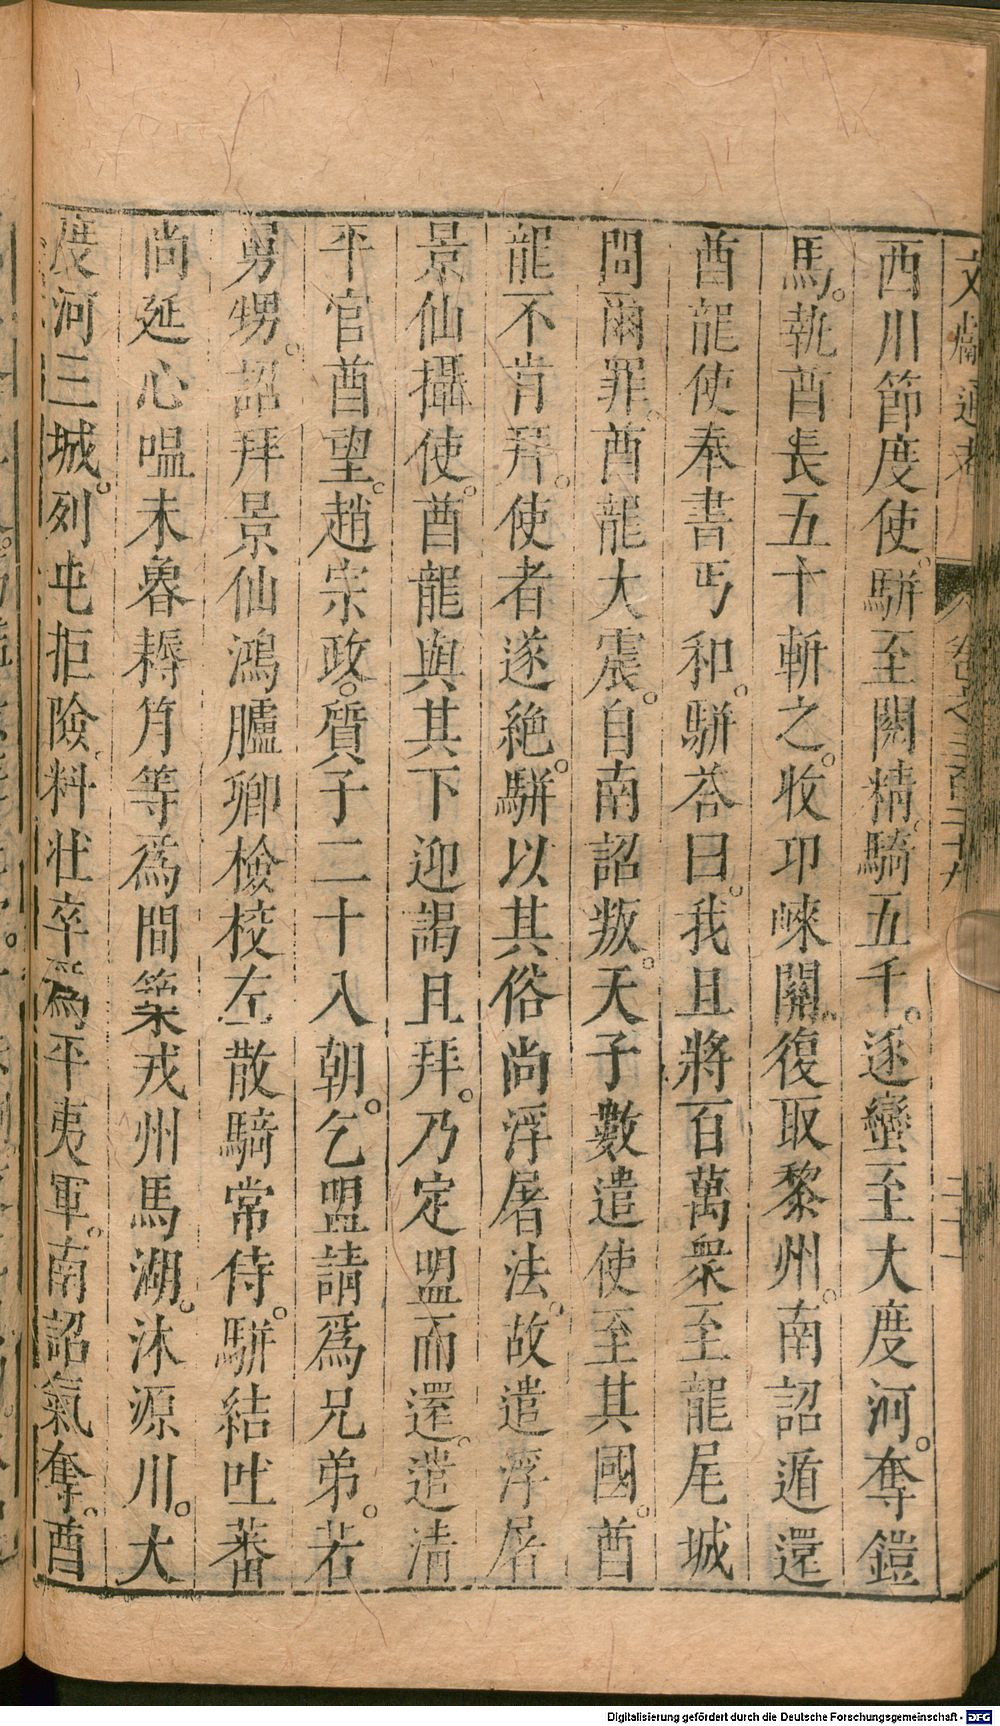 文獻通考 卷之三百二十九 二十一
西川節度使。駢至闕精騎五千。逐蠻至大度河。奪鎧
馬。執酋長五十斬之。收邛崍關。復取黎州。南詔遁還
酋龍使奉書丐和。駢荅曰。我且將百萬衆至龍尾城
問爾罪。酋龍大震。自南詔叛。天子數遣使至其國。酋
龍不肯拜。使者遂絶。駢以其俗尚浮屠法。故遣浮屠
景仙攝使。酋龍與其下迎謁且拜。乃定盟而還。遣清
平官酋望。趙宗政。質子二十入朝。乞盟請爲兄弟。若
舅甥。詔拜景仙鴻臚卿檢校左散騎常侍。駢結吐蕃
尚延心嗢末魯耨月等爲間築戎州馬湖。沐源川。大
度河三城。列屯拒險。料壯卒爲平夷軍。南詔氣奪。酋
Digitalisierung gefördert durch die Deutsche Forschungsgemeinschaft - DFG